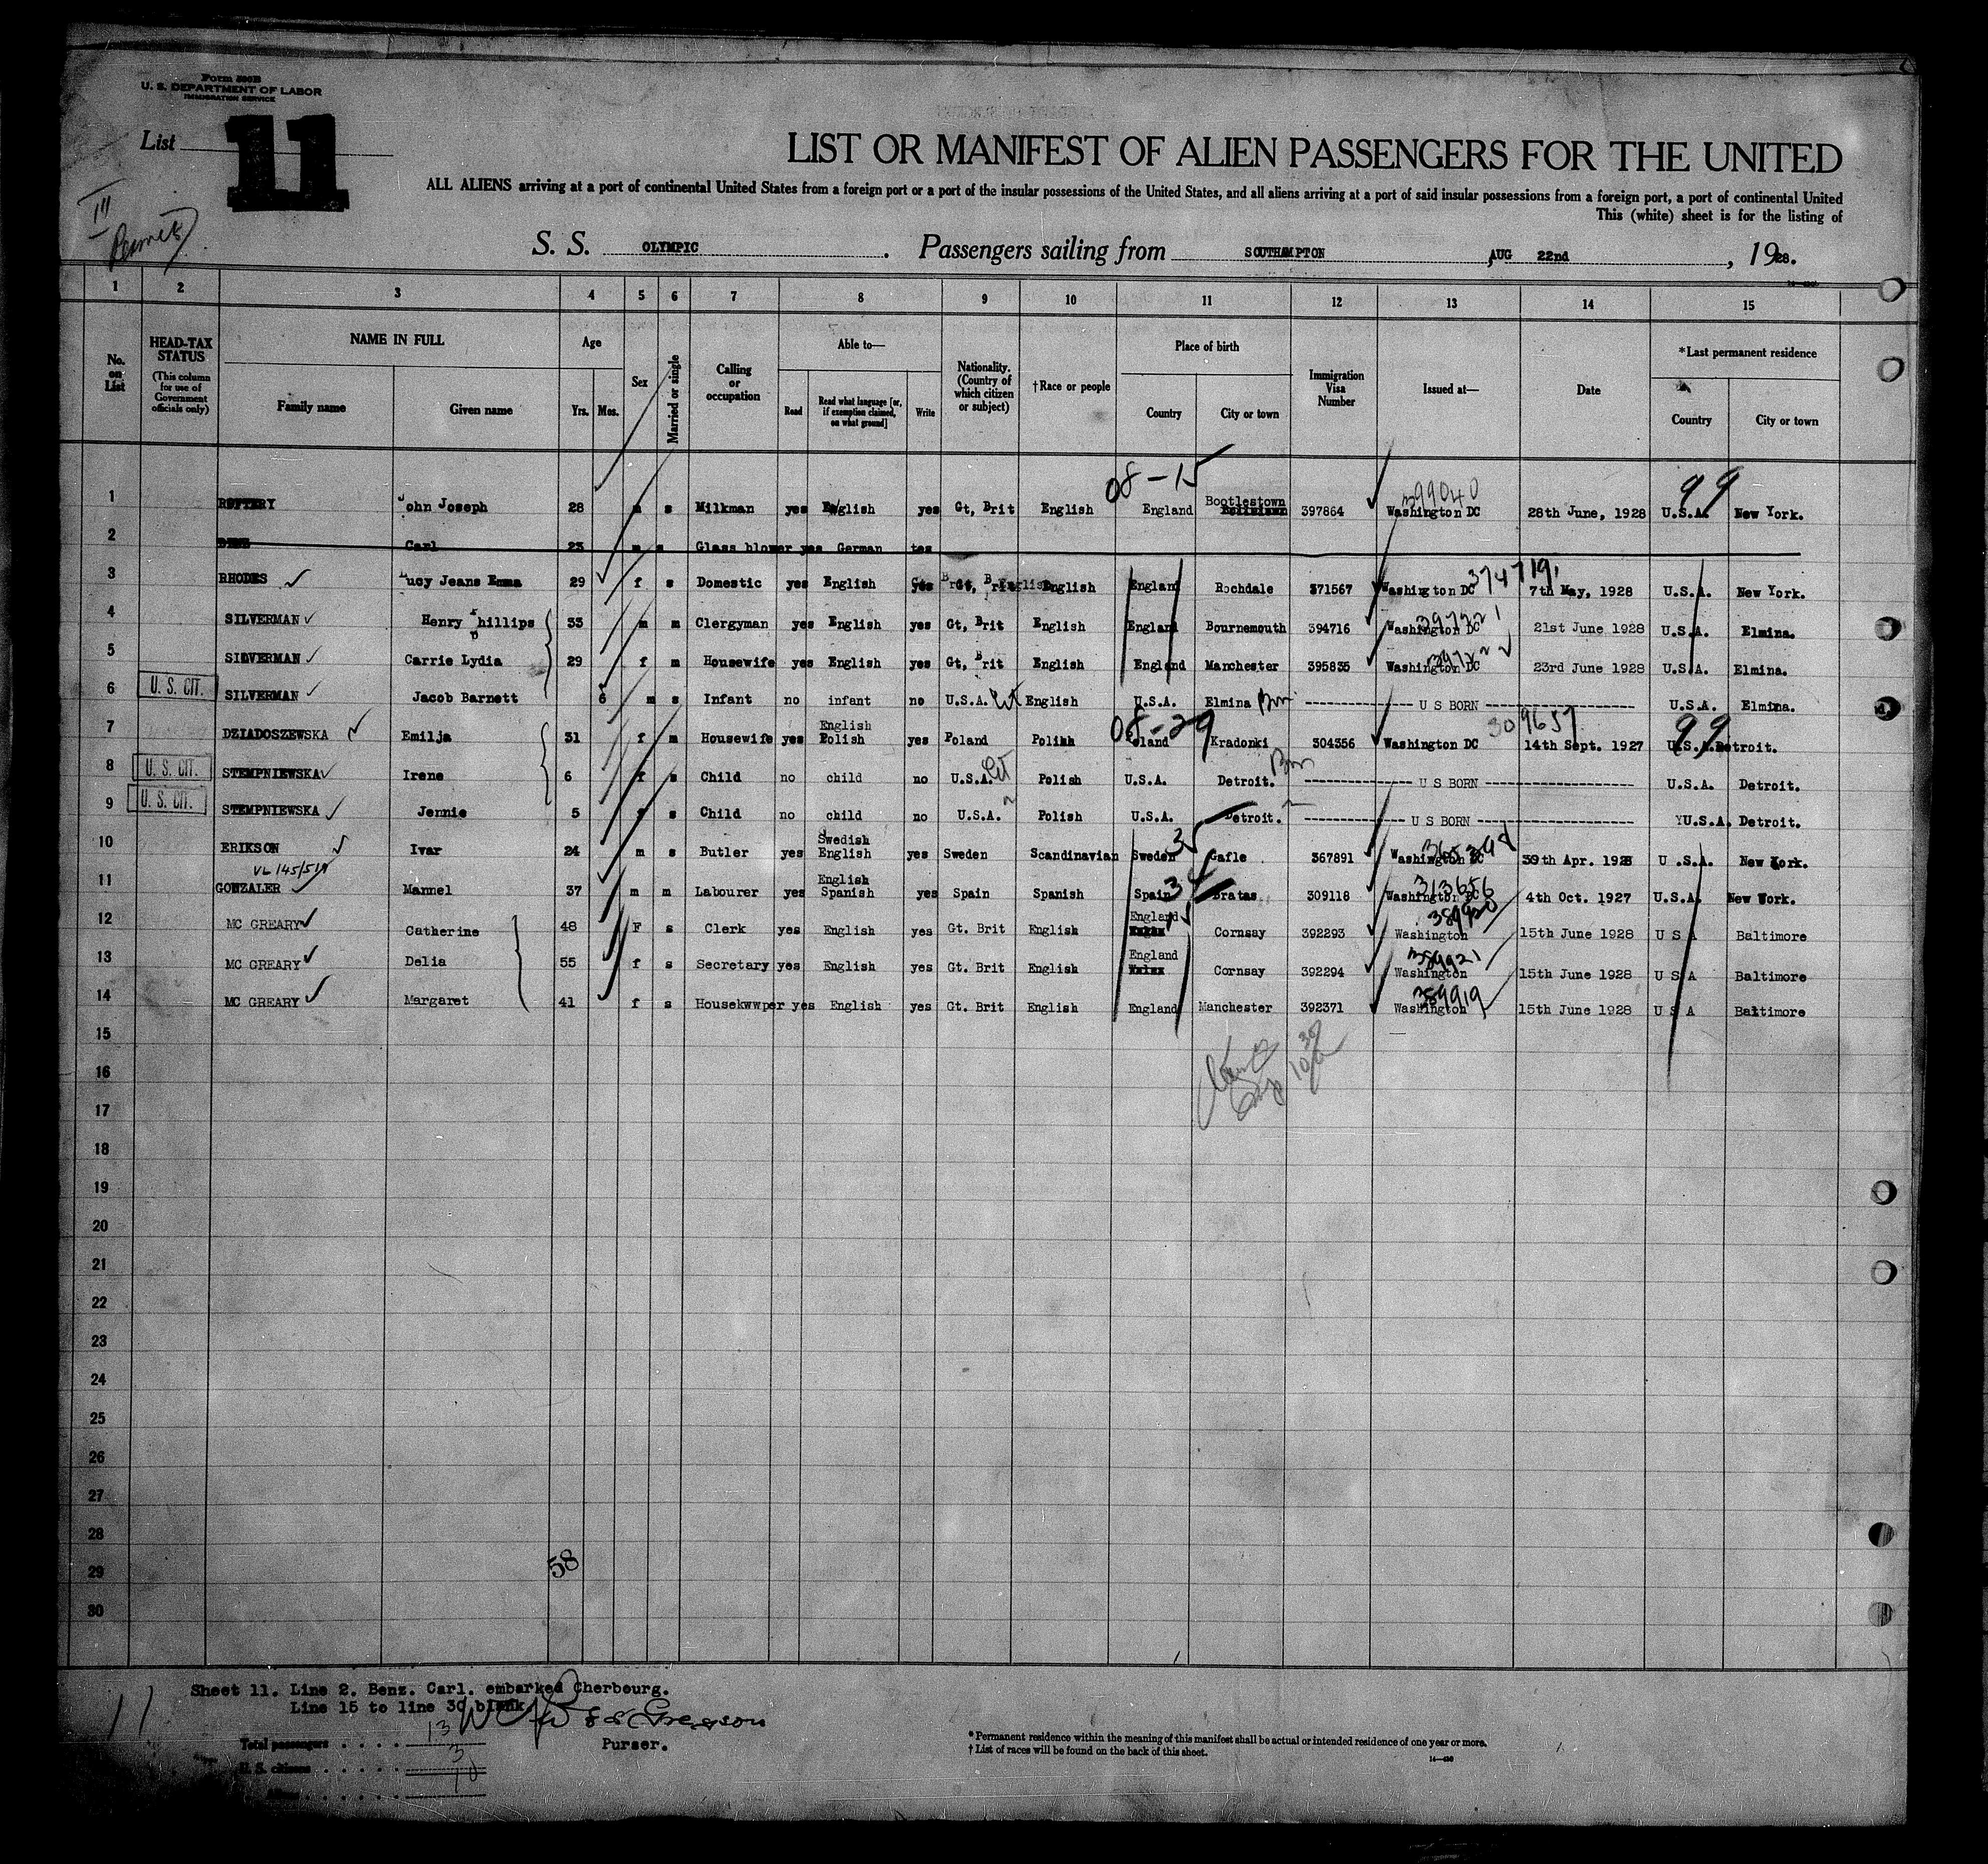 Form 500B
U. S. DEPARTMENT OF LABOR
IMMIGRATION SERVICE
List 11
III
Permits
LIST OR MANIFEST OF ALIEN PASSENGERS FOR THE UNITED
ALL ALIENS arriving at a port of continental United States from a foreign port or a port of the insular possessions of the United States, and all aliens arriving at a port of said insular possessions from a foreign port, a port of continental United
This (white) sheet is for the listing of
S. S. OLYMPIC. Passengers sailing from SOUTHAMPTON, AUG 22nd, 1928.
1 2 3 4 5 6 7 8 9 10 11 12 13 14 15
No. on List
HEAD-TAX STATUS (This column for use of Government officials only)
NAME IN FULL Family name Given name
Age Yrs. Mos.
Sex
Married or single
Calling or occupation
Able to— Read Read what language [or, if exemption claimed, on what ground] Write
Nationality. (Country of which citizen or subject)
†Race or people
Place of birth Country City or town
Immigration Visa Number
Issued at—
Date
*Last permanent residence Country City or town
08-15 399040 99
1 John Joseph 28 s Milkman yes English yes Gt, Brit English England Bootlestown 397864 Washington DC 28th June, 1928 U.S.A. New York.
2 Carl 23 m s Glass blower yes German yes
3 RHODES Lucy Jeans Emma 29 f s Domestic yes English yes Gt, Brit English England Rochdale 371567 Washington DC 7th May, 1928 U.S.A. New York.
4 SILVERMAN Henry Phillips 33 m m Clergyman yes English yes Gt, Brit English England Bournemouth 394716 Washington DC 21st June 1928 U.S.A. Elmina.
5 SILVERMAN Carrie Lydia 29 f m Housewife yes English yes Gt, Brit English England Manchester 395835 Washington DC 23rd June 1928 U.S.A. Elmina.
6 U. S. CIT. SILVERMAN Jacob Barnett 6 m s Infant no infant no U.S.A. Cit English U.S.A. Elmina U S BORN U.S.A. Elmina.
08-29 309657 99
7 DZIADOSZEWSKA Emilja 31 f m Housewife yes English Polish yes Poland Polish Poland Kradonki 304356 Washington DC 14th Sept. 1927 U.S.A. Detroit.
8 U. S. CIT. STEMPNIEWSKA Irene 6 f s Child no child no U.S.A. Cit Polish U.S.A. Detroit. U S BORN U.S.A. Detroit.
9 U. S. CIT. STEMPNIEWSKA Jennie 5 f s Child no child no U.S.A. Polish U.S.A. Detroit. U S BORN U.S.A. Detroit.
10 ERIKSON Ivar 24 m s Butler yes Swedish English yes Sweden Scandinavian Sweden Gafle 367891 Washington DC 30th Apr. 1928 U.S.A. New York.
VL 145/519
11 GONZALER Mannel 37 m m Labourer yes English Spanish yes Spain Spanish Spain 34 Bratas 309118 313656 Washington DC 4th Oct. 1927 U.S.A. New York.
12 MC GREARY Catherine 48 F s Clerk yes English yes Gt. Brit English England Cornsay 392293 389920 Washington 15th June 1928 U S A Baltimore
13 MC GREARY Delia 55 f s Secretary yes English yes Gt. Brit English England Cornsay 392294 389921 Washington 15th June 1928 U S A Baltimore
14 MC GREARY Margaret 41 f s Housekwwper yes English yes Gt. Brit English England Manchester 392371 389919 Washington 15th June 1928 U S A Baltimore
15
16
17
18
19
20
21
22
23
24
25
26
27
28
29
30
58
Sheet 11. Line 2. Benz. Carl. embarked Cherbourg.
Line 15 to line 30 blank
11
Gregson
Purser.
Total passengers 13
U. S. citizens 3
Aliens 10
*Permanent residence within the meaning of this manifest shall be actual or intended residence of one year or more.
†List of races will be found on the back of this sheet.